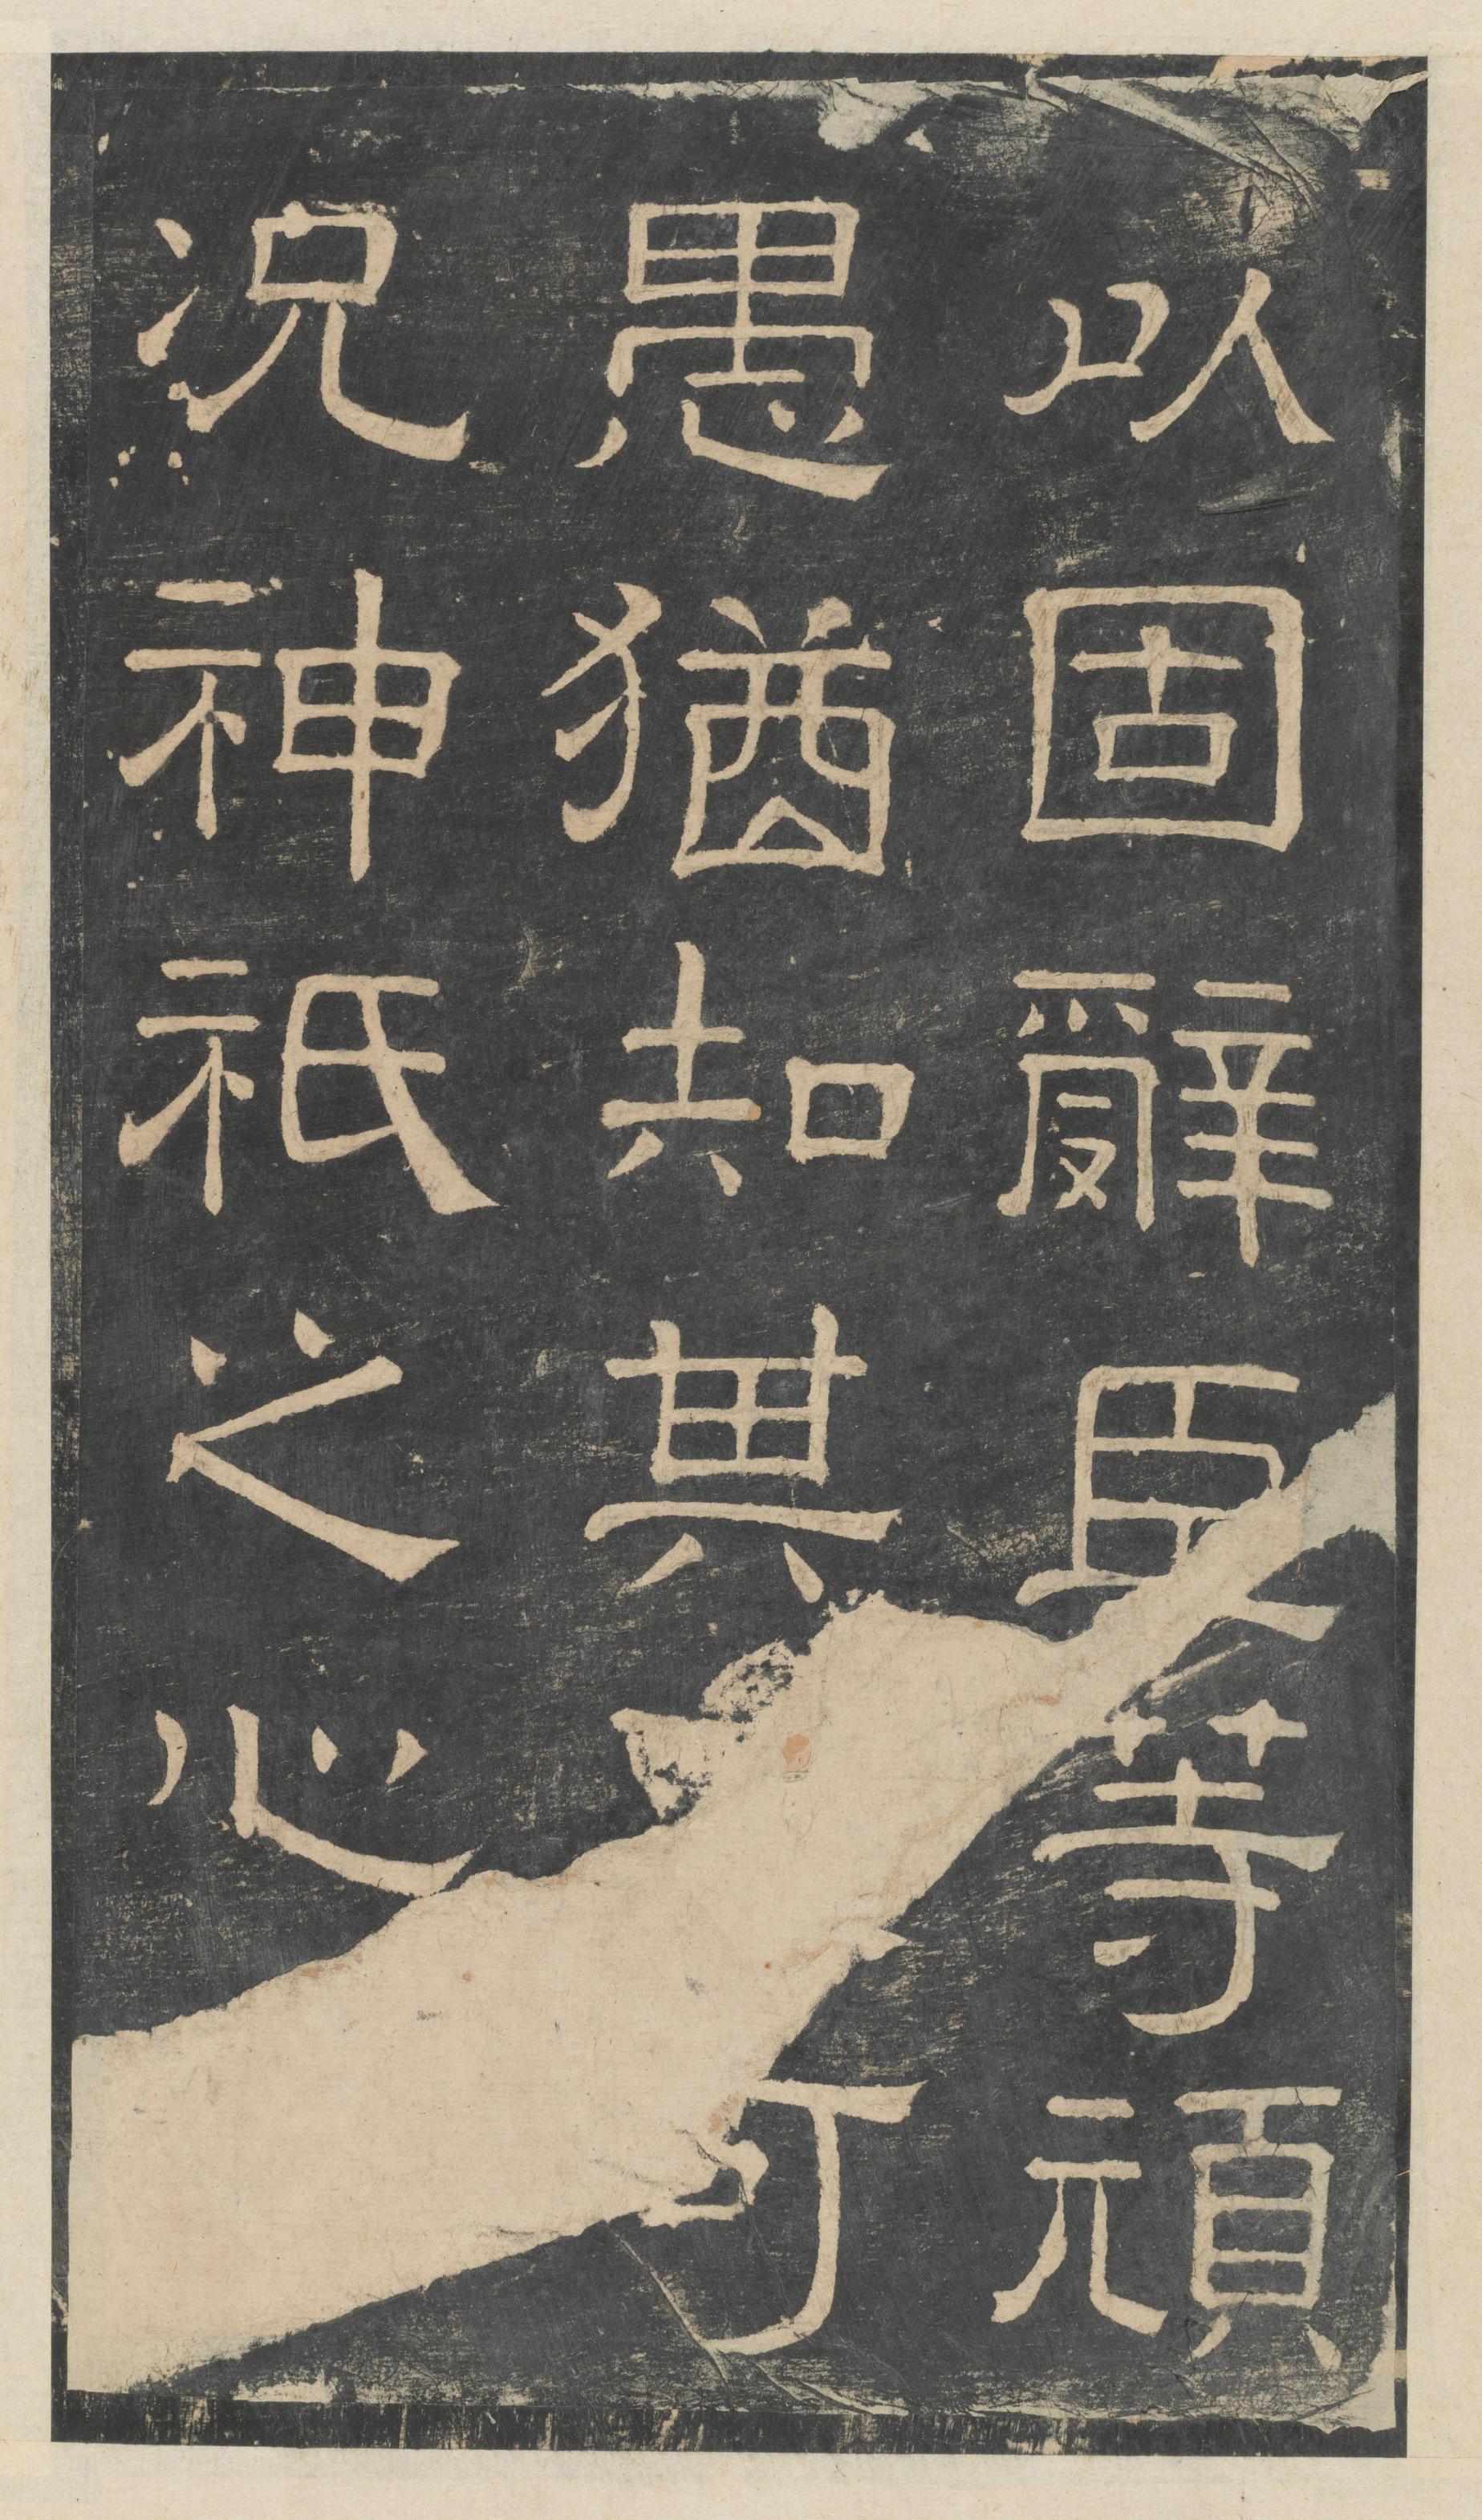 以固辭臣等頑
愚猶知其可
況神祇之心